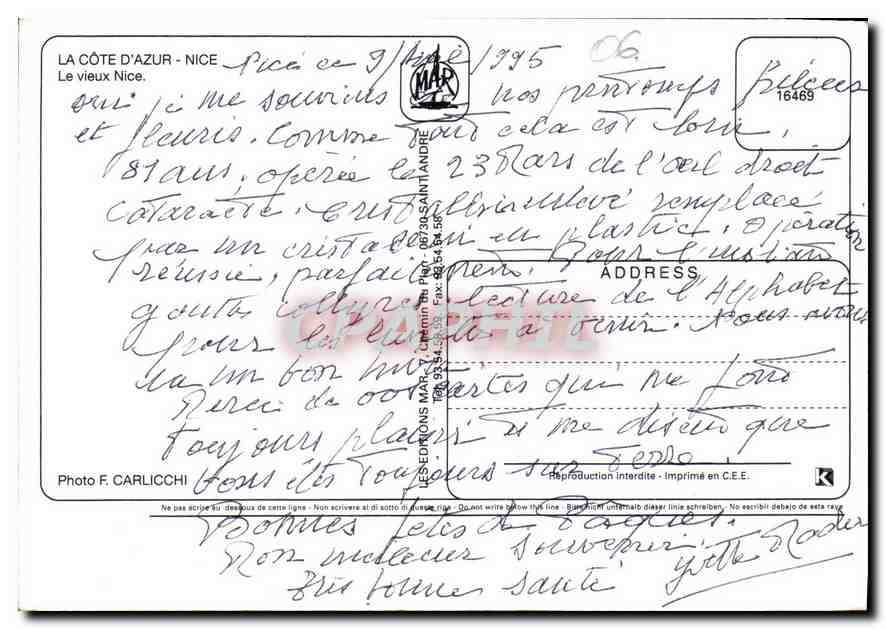 LA CÔTE D'AZUR - NICE
Le vieux Nice.
Nice ce 9/ 1995
06
MAR
16469
oui je me souviens nos printemps
et fleuris. Comme tout cela est loin.
81 ans, opérée le 23 Mars de l'œil droit
cataracte. Cristallin enlevé remplacé
par un cristallin en plastic. Opération
réussie, parfaitement. Pour l'instant
gouttes collyre lecture de l'Alphabet
pour les lunettes à venir. Nous avons
eu un bon hiver
Merci de vos cartes qui me font
toujours plaisir et me disent que
vous êtes toujours sur Terre.
Bonnes fêtes de Pâques.
Mon meilleur souvenir.
très bonne santé
Yvette Nader
ADDRESS
LES EDITIONS MAR, 7, Chemin du Plan - 06730 SAINT ANDRE
Tél. 93.54.58.59 - Fax: 93.54.64.58
CPAPHIL
Photo F. CARLICCHI
Reproduction interdite - Imprimé en C.E.E.
K
Ne pas écrire au dessous de cette ligne - Non scrivere al di sotto di questa riga - Do not write below this line - Bitte nicht unterhalb dieser linie schreiben. - No escribir debajo de esta raya